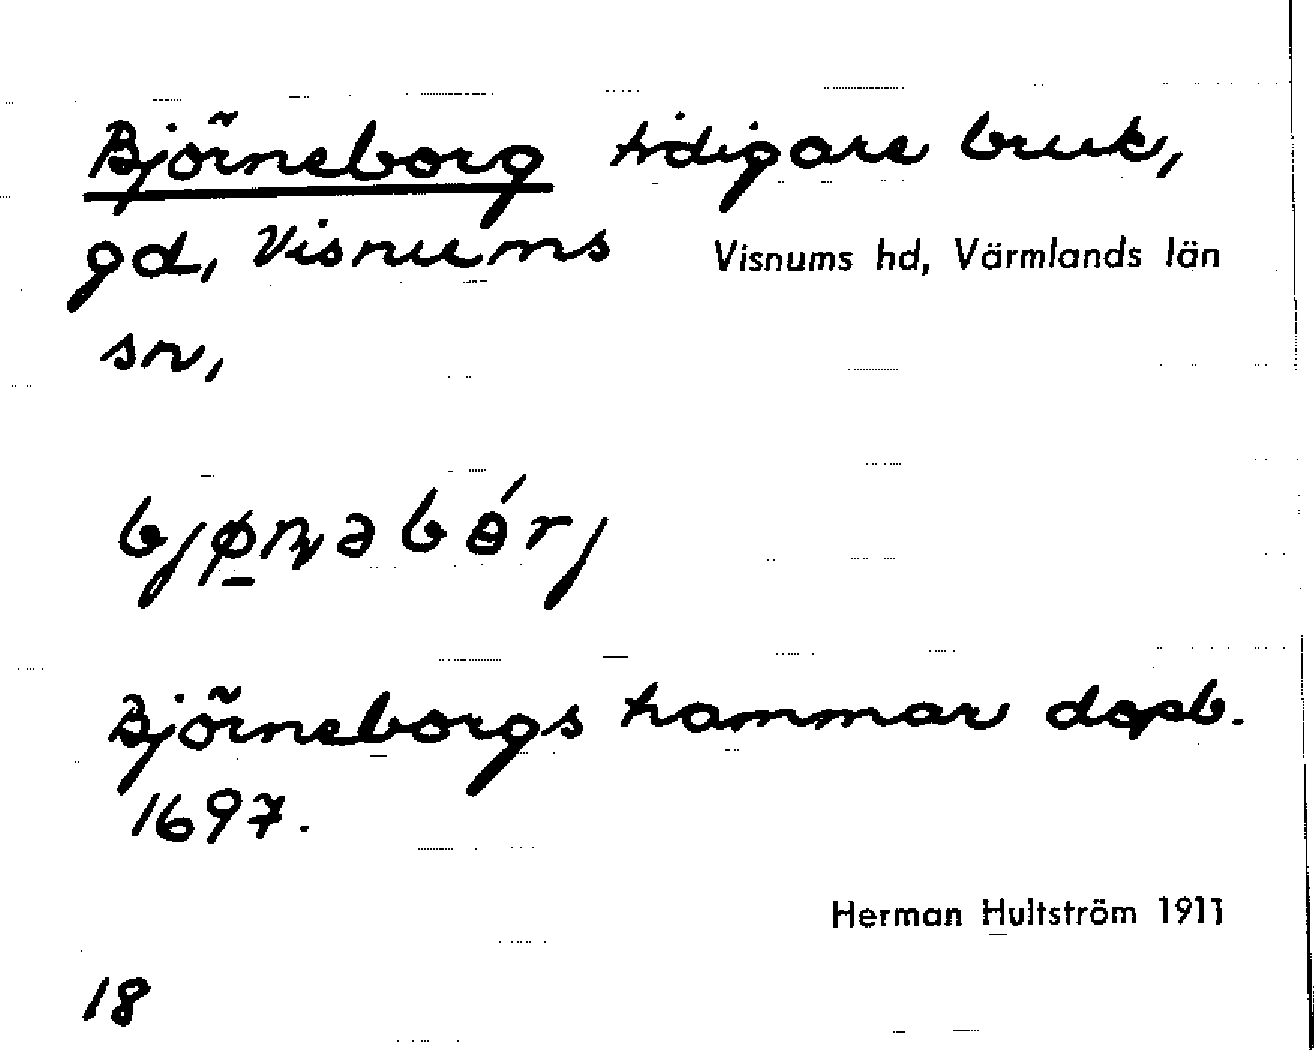 Björneborg tidigare bruk,
gd, Visnums Visnums hd, Värmlands län
sn,
bjø̱ɳəbɵ́rj
Björneborgs hammar dopb.
1697.
Herman Hultström 1911
18